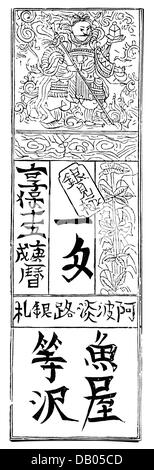 銀
一匁
享保十五
庚戌暦
阿波淡路銀札
魚屋
等沢
alamy
DB05CD